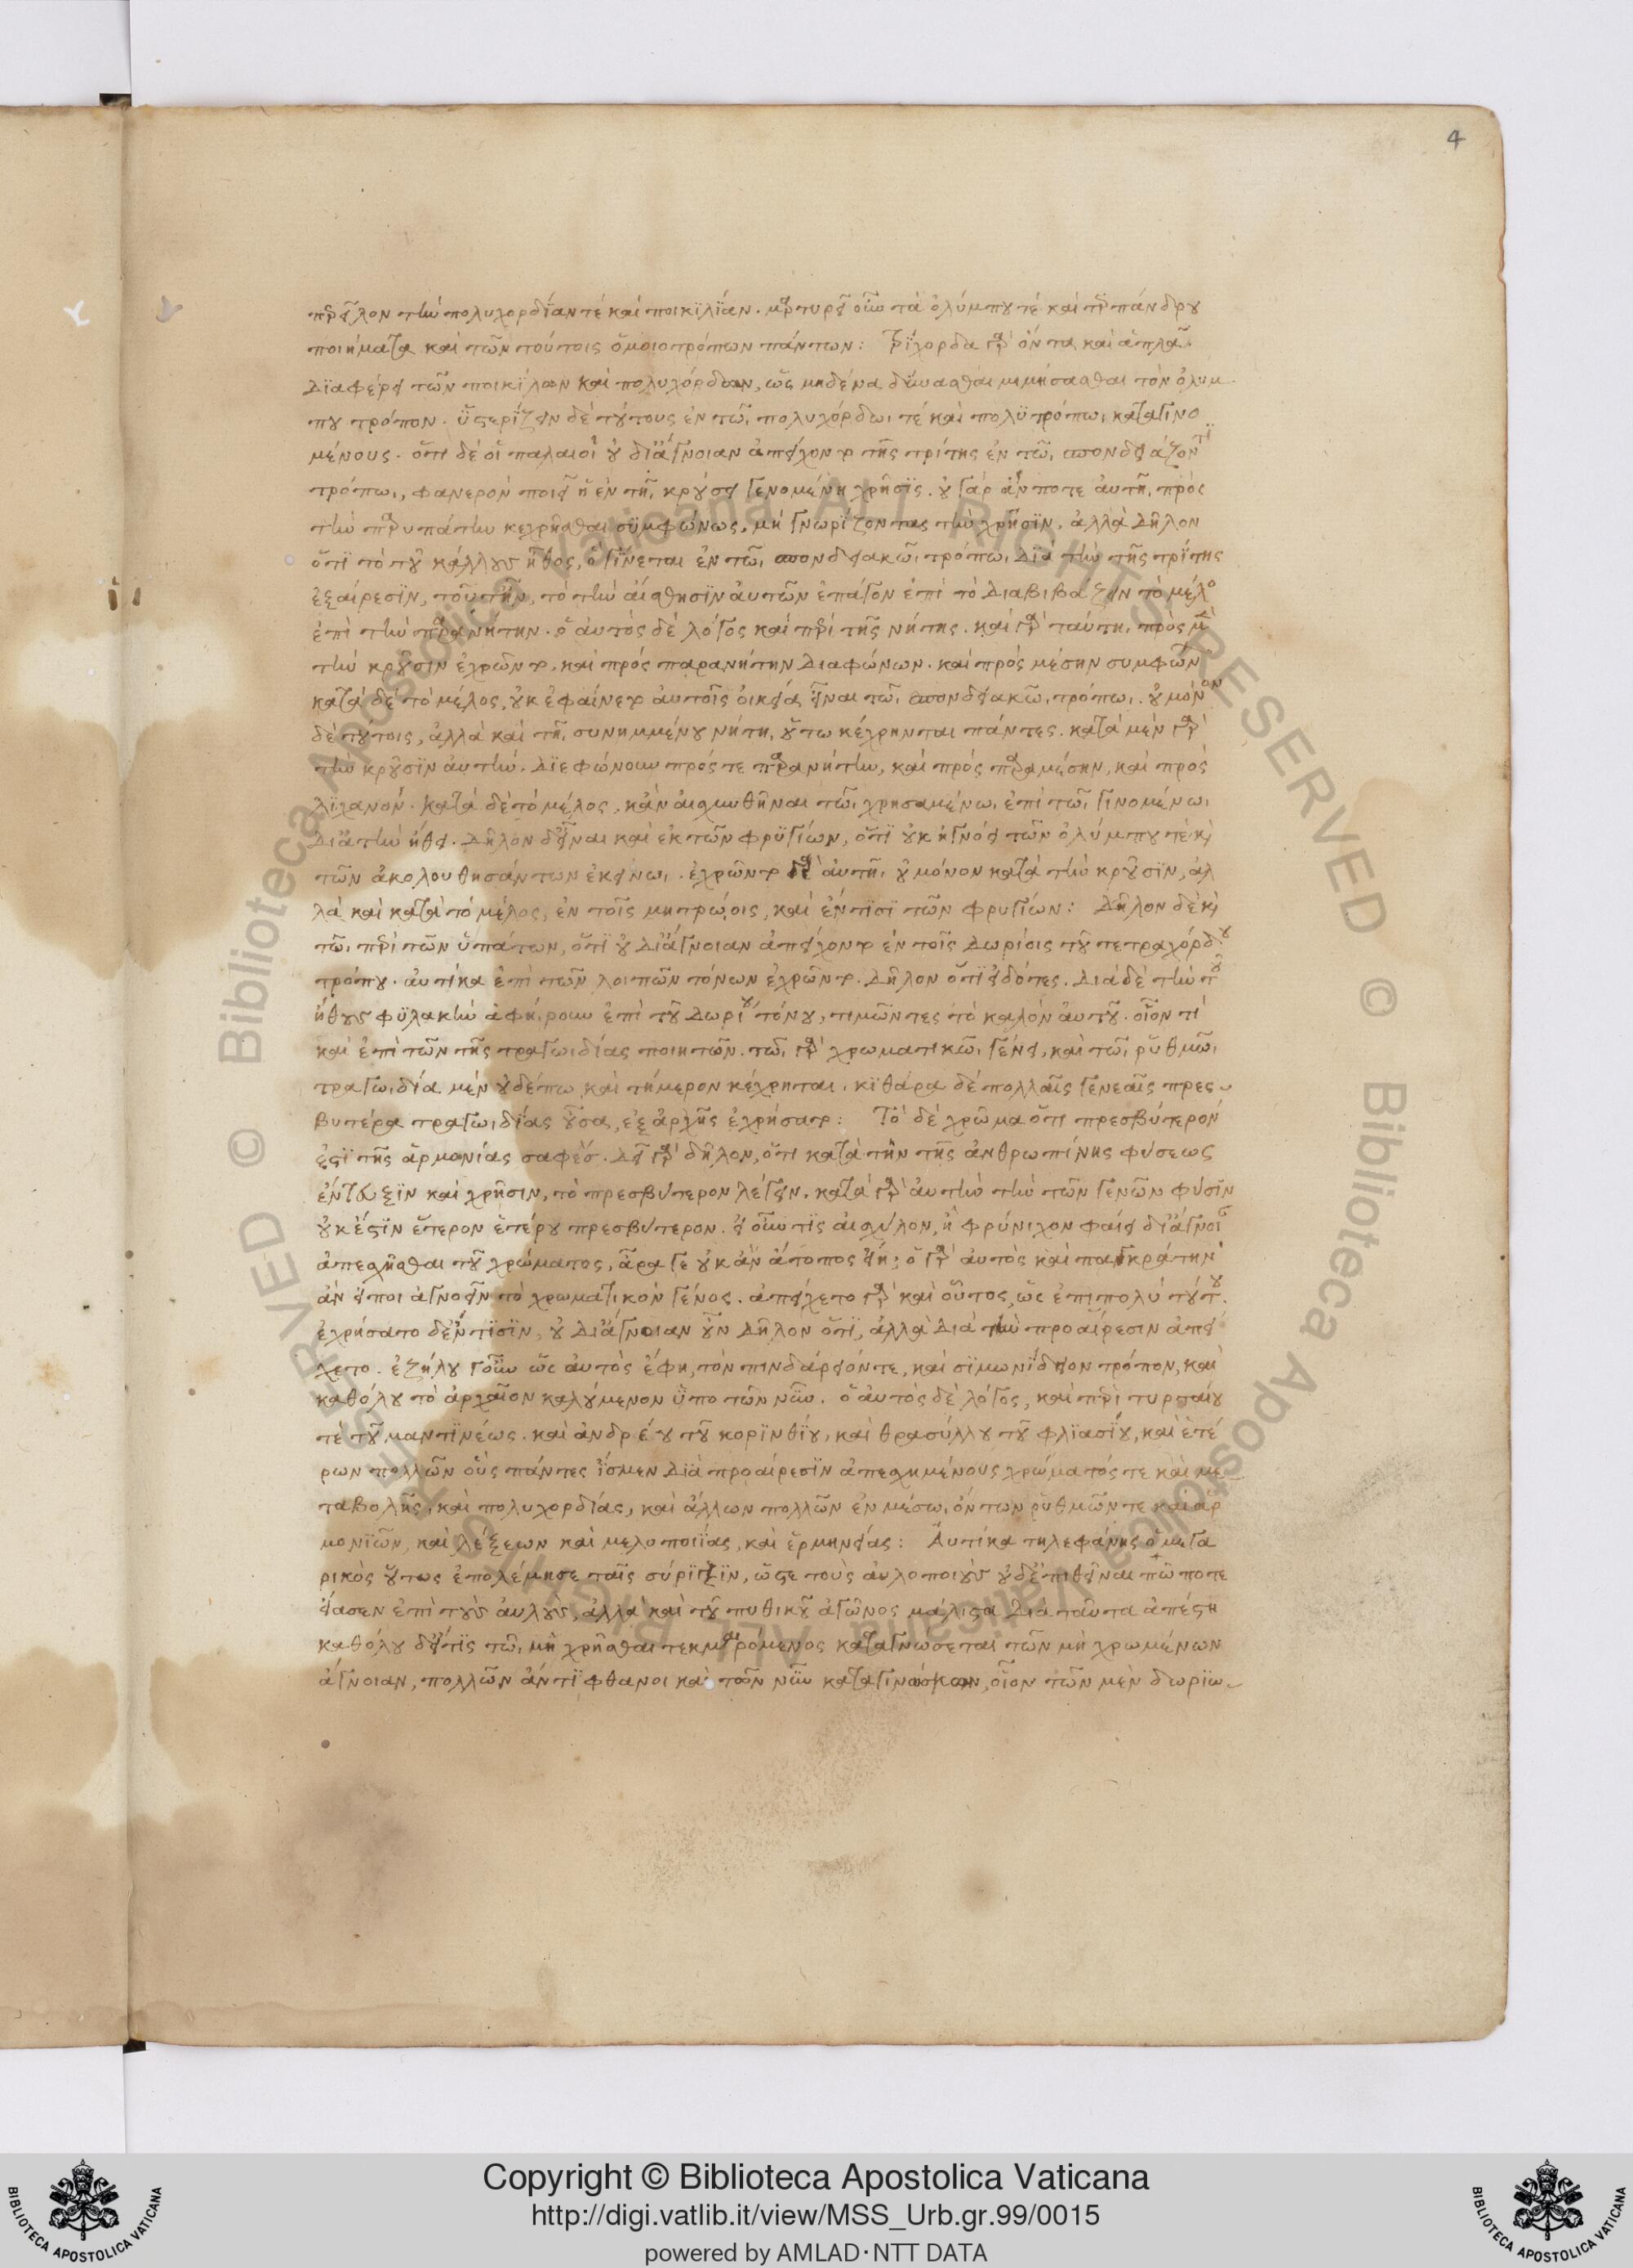 4
περιεῖλον τὴν πολυχορδίαν τὲ καὶ ποικιλίαν. μαρτυρεῖ οὖν τὰ ὀλύμπου τὲ καὶ τερπάνδρου
ποιήματα καὶ τῶν τούτοις ὁμοιοτρόπων πάντων: Τρίχορδα γὰρ ὄντα καὶ ἁπλᾶ.
Διαφέρει τῶν ποικίλων καὶ πολυχόρδων, ὡς μηδένα δύνασθαι μιμήσασθαι τὸν ὀλύμ
που τρόπον. ὑστερίζειν δὲ τούτους ἐν τῶι πολυχόρδωι τὲ καὶ πολυτρόπωι καταγινο
μένους. ὅτι δὲ οἱ παλαιοὶ οὐ δι' ἄγνοιαν ἀπείχοντο τῆς τρίτης ἐν τῶι σπονδειάζοντι
τρόπωι, φανερὸν ποιεῖ ἡ ἐν τῆι κρούσει γενομένη χρῆσις. οὐ γὰρ ἄν ποτε αὐτῆι πρὸς
τὴν παρυπάτην κεχρῆσθαι συμφώνως, μὴ γνωρίζοντας τὴν χρῆσιν, ἀλλὰ δῆλον
ὅτι τὸ τοῦ κάλλους ἦθος, ὃ γίνεται ἐν τῶι σπονδειακῶι τρόπωι διὰ τὴν τῆς τρίτης
ἐξαίρεσιν, τοῦτ' ἦν, τὸ τὴν αἴσθησιν αὐτῶν ἐπάγον ἐπὶ τὸ διαβιβάζειν τὸ μέλος
ἐπὶ τὴν παρανήτην. ὁ αὐτὸς δὲ λόγος καὶ περὶ τῆς νήτης. καὶ γὰρ ταύτηι πρὸς μὲν
τὴν κροῦσιν ἐχρῶντο, καὶ πρὸς παρανήτην διαφώνων. καὶ πρὸς μέσην συμφών
κατὰ δὲ τὸ μέλος, οὐκ ἐφαίνετο αὐτοῖς οἰκεία εἶναι τῶι σπονδειακῶι τρόπωι. οὐ μόνον
δὲ τούτοις, ἀλλὰ καὶ τῆι συνημμένου νήτηι οὕτω κέχρηνται πάντες. κατὰ μὲν γὰρ
τὴν κροῦσιν αὐτὴν. διεφώνουν πρός τε παρανήτην, καὶ πρὸς παραμέσην, καὶ πρὸς
λιχανόν. κατὰ δὲ τὸ μέλος, κἂν αἰσχυνθῆναι τῶι χρησαμένωι ἐπὶ τῶι γινομένωι
διὰ τὴν ἤθει. δῆλον δ' εἶναι καὶ ἐκ τῶν φρυγίων, ὅτι οὐκ ἠγνόει τῶν ὀλύμπου τὲ καὶ
τῶν ἀκολουθησάντων ἐκείνωι. ἐχρῶντο γὰρ αὐτῆι οὐ μόνον κατὰ τὴν κροῦσιν, ἀλ
λὰ καὶ κατὰ τὸ μέλος, ἐν τοῖς μητρώιοις, καὶ ἔν τισι τῶν φρυγίων: Δῆλον δὲ καὶ
τῶι περὶ τῶν ὑπάτων, ὅτι οὐ δι' ἄγνοιαν ἀπείχοντο ἐν τοῖς δωρίοις τοῦ τετραχόρδου
τρόπου. αὐτίκα ἐπὶ τῶν λοιπῶν τόνων ἐχρῶντο. δῆλον ὅτι εἰδότες. διὰ δὲ τὴν τοῦ
ἤθους φυλακὴν ἀφήιρουν ἐπὶ τοῦ δωρίου τόνου, τιμῶντες τὸ καλὸν αὐτοῦ. οἷόν τι
καὶ ἐπὶ τῶν τῆς τραγωιδίας ποιητῶν. τῶι γὰρ χρωματικῶι γένει, καὶ τῶι ῥυθμῶι
τραγωιδία μὲν οὐδέπω καὶ τήμερον κέχρηται. κιθάρα δὲ πολλαῖς γενεαῖς πρεσ
βυτέρα τραγωιδίας οὖσα, ἐξ ἀρχῆς ἐχρήσατο: Τὸ δὲ χρῶμα ὅτι πρεσβύτερόν
ἐστι τῆς ἁρμονίας σαφές. δεῖ γὰρ δῆλον, ὅτι κατὰ τὴν τῆς ἀνθρωπίνης φύσεως
ἔντευξιν καὶ χρῆσιν, τὸ πρεσβύτερον λέγειν. κατὰ γὰρ αὐτὴν τὴν τῶν γενῶν φύσιν
οὐκ ἔστιν ἕτερον ἑτέρου πρεσβύτερον. εἰ οὖν τις αἰσχύλον, ἢ φρύνιχον φαίει δι' ἄγνοιαν
ἀπεσχῆσθαι τοῦ χρώματος, ἆρα γε οὐκ ἂν ἄτοπος εἴη; ὁ γὰρ αὐτὸς καὶ παγκράτην
ἂν εἴποι ἀγνοεῖν τὸ χρωματικὸν γένος. ἀπείχετο γὰρ καὶ οὗτος, ὡς ἐπιπολὺ τούτου.
ἐχρήσατο δ' ἔν τισιν, οὐ δι' ἄγνοιαν οὖν δῆλον ὅτι, ἀλλὰ διὰ τὴν προαίρεσιν ἀπεί
χετο. ἐζήλου γοῦν ὡς αὐτὸς ἔφη, τὸν πινδάρειόν τε, καὶ σιμωνίδειον τρόπον, καὶ
καθόλου τὸ ἀρχαῖον καλούμενον ὑπο τῶν νῦν. ὁ αὐτὸς δὲ λόγος, καὶ περὶ τυρταίου
τὲ τοῦ μαντινέως. καὶ ἀνδρέου τοῦ κορινθίου, καὶ θρασύλλου τοῦ φλιασίου, καὶ ἑτέ
ρων πολλῶν οὓς πάντες ἴσμεν διὰ προαίρεσιν ἀπεσχημένους χρώματός τε καὶ με
ταβολῆς, καὶ πολυχορδίας, καὶ ἄλλων πολλῶν ἐν μέσωι ὄντων ῥυθμῶν τε καὶ ἁρ
μονιῶν, καὶ λέξεων καὶ μελοποιίας, καὶ ἑρμηνείας: Αὐτίκα τηλεφάνης ὁ μεγα
ρικὸς οὕτως ἐπολέμησε ταῖς σύριγξιν, ὥστε τοὺς αὐλοποιοὺς οὐδ' ἐπιθεῖναι πώποτε
εἴασεν ἐπὶ τοὺς αὐλούς, ἀλλὰ καὶ τοῦ πυθικοῦ ἀγῶνος μάλιστα διὰ ταῦτα ἀπέστη
καθόλου δ' εἴτις τῶι μὴ χρῆσθαι τεκμαιρόμενος καταγνώσεται τῶν μὴ χρωμένων
ἄγνοιαν, πολλῶν ἄν τι φθανοι καὶ τῶν νῦν καταγινώσκων, οἷον τῶν μὲν δωριω
Copyright © Biblioteca Apostolica Vaticana
http://digi.vatlib.it/view/MSS_Urb.gr.99/0015
powered by AMLAD·NTT DATA